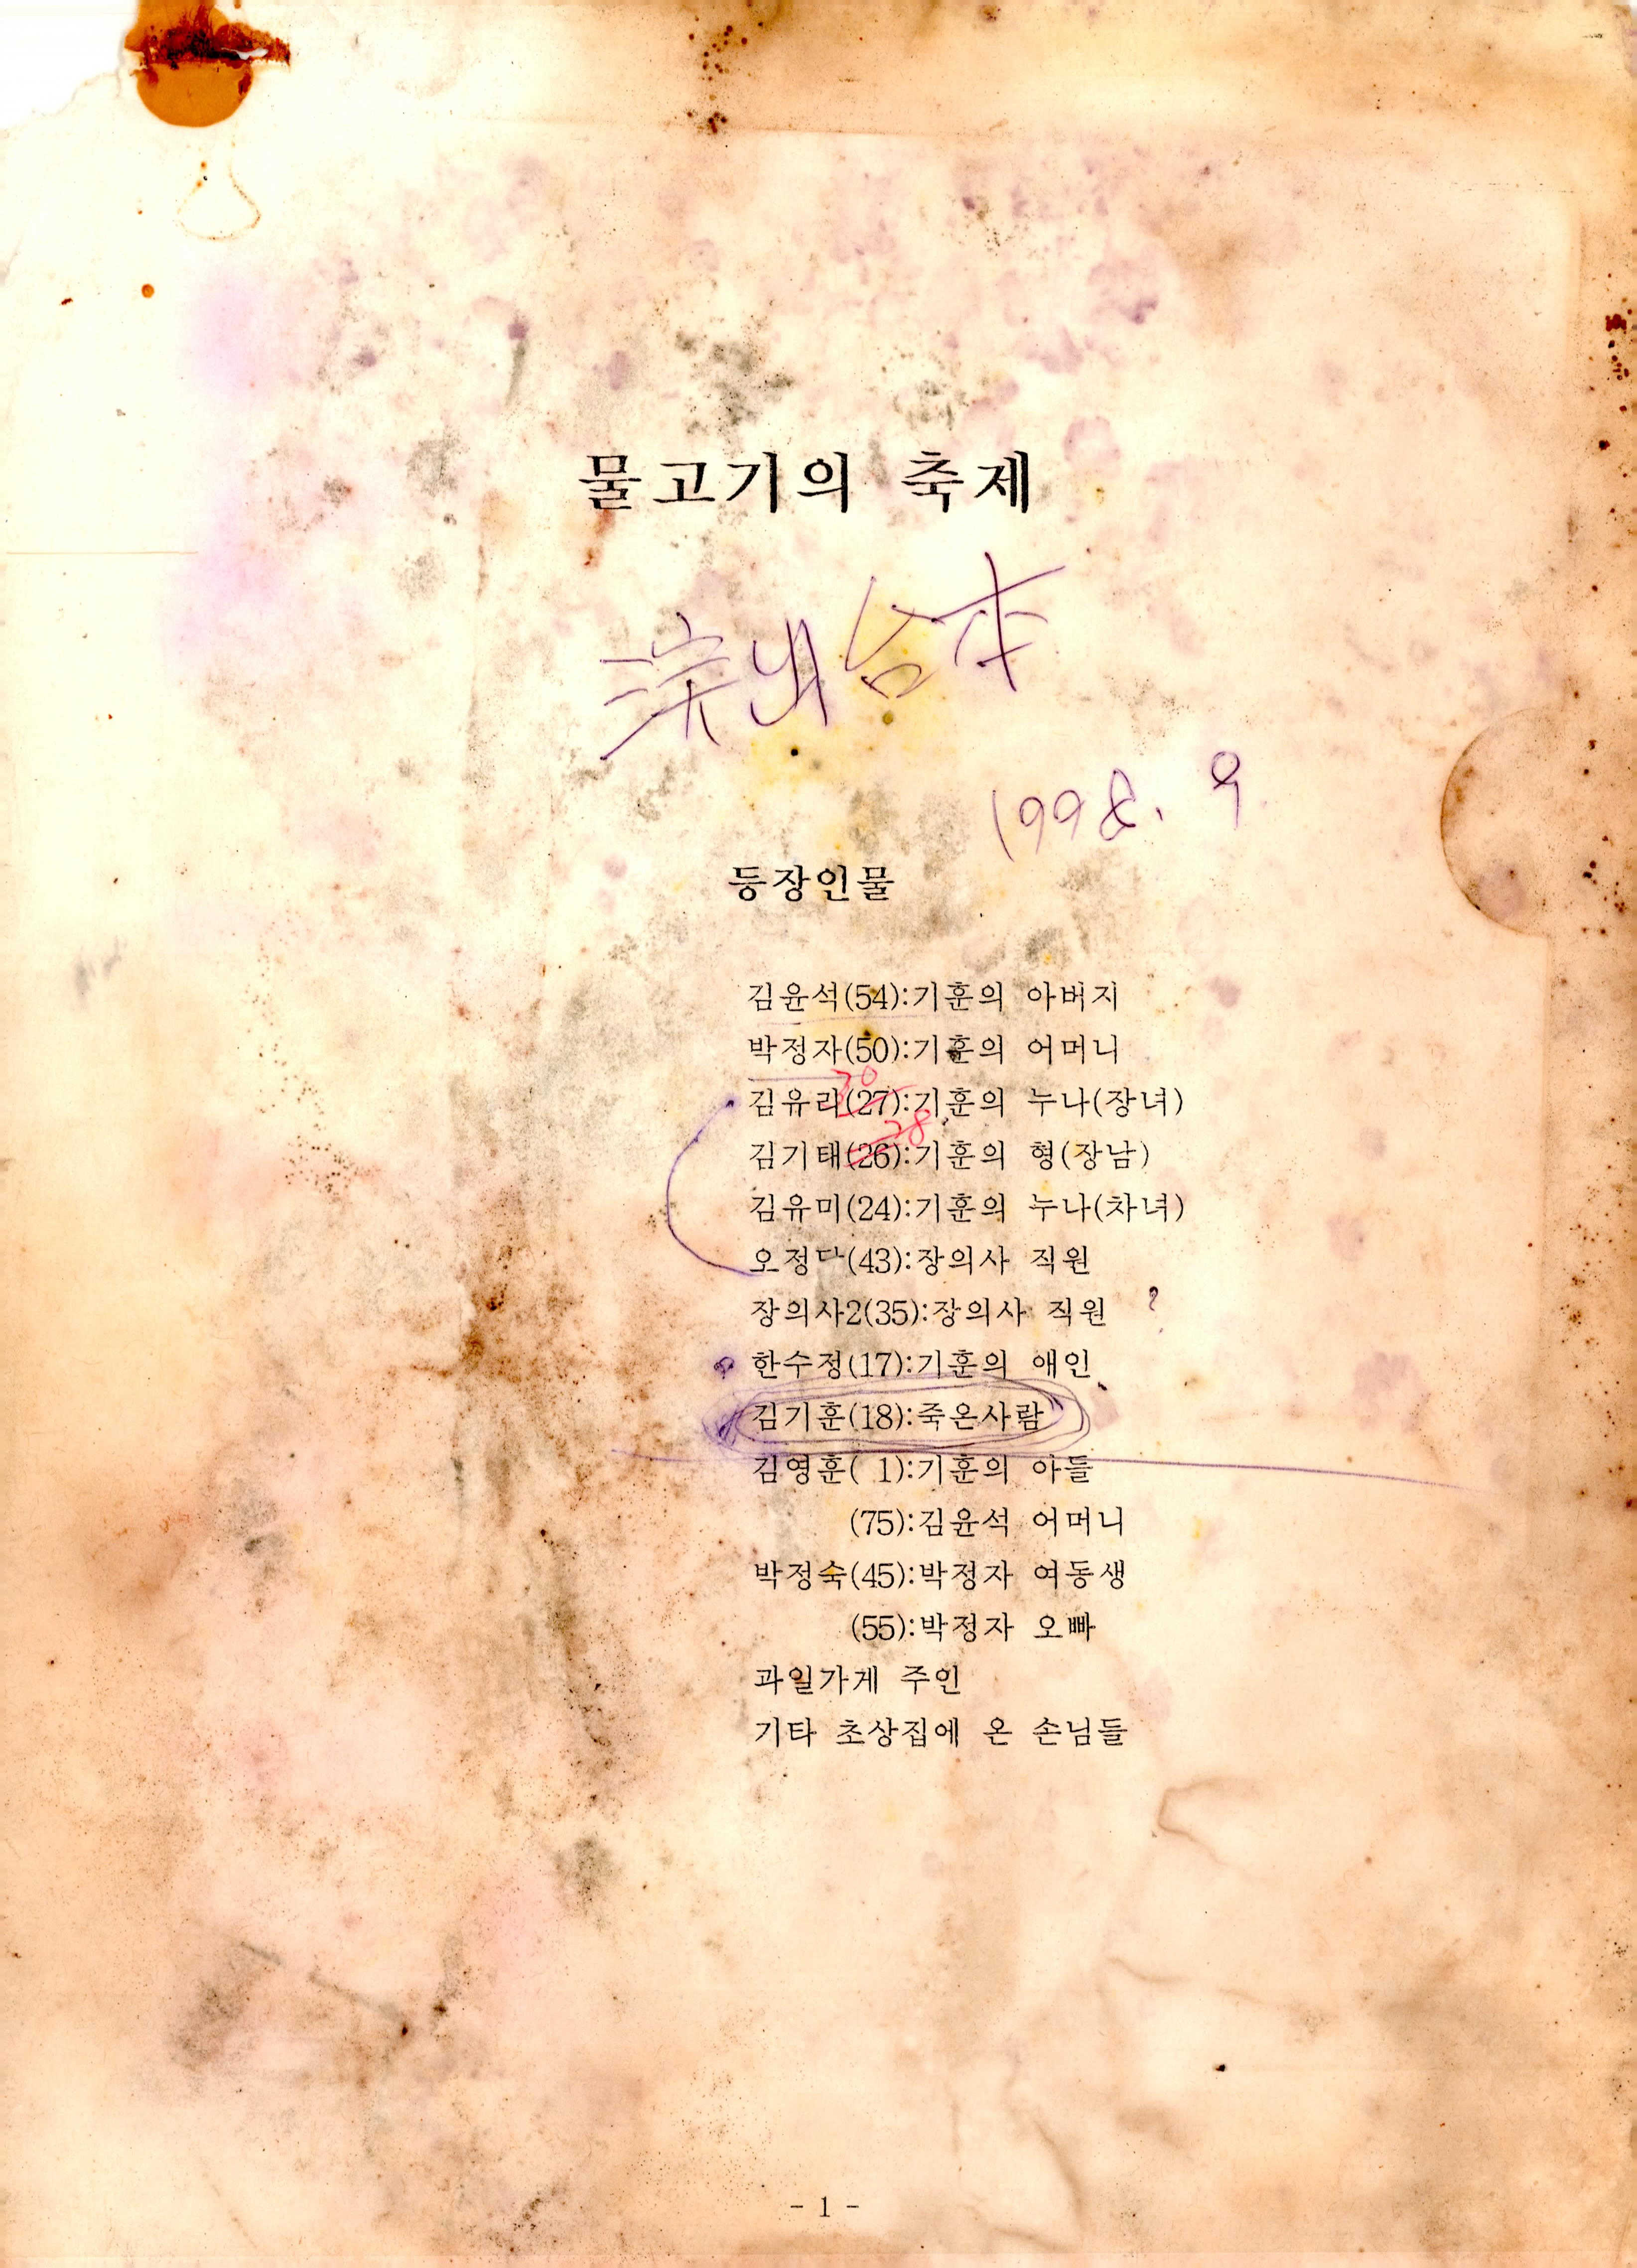 물고기의 축제
演出台本
1998. 9
등장인물
김윤석(54):기훈의 아버지
박정자(50):기훈의 어머니
30
김유리(27):기훈의 누나(장녀)
28
김기태(26):기훈의 형(장남)
김유미(24):기훈의 누나(차녀)
오정다(43):장의사 직원
장의사2(35):장의사 직원 ?
한수정(17):기훈의 애인
김기훈(18):죽은사람
김영훈( 1):기훈의 아들
(75):김윤석 어머니
박정숙(45):박정자 여동생
(55):박정자 오빠
과일가게 주인
기타 초상집에 온 손님들
- 1 -